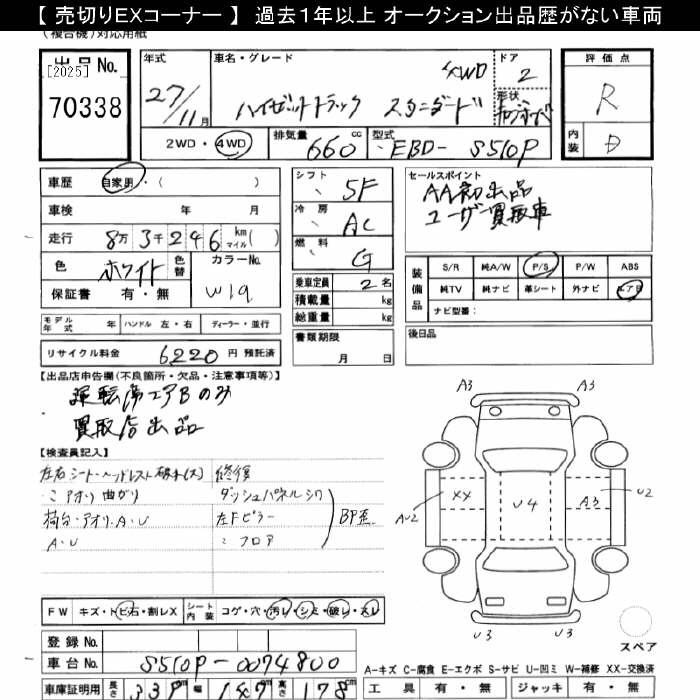 【 売切りEXコーナー 】 過去1年以上 オークション出品歴がない車両
(複合機)対応用紙
出品No.
[2025]
70338
年式
27/11月
車名・グレード
4WD
ハイゼットトラック スタンダード
ドア
2
形状
評価点
R
内装
D
2WD・4WD
排気量 660 cc
型式 EBD- S510P
車歴 自家用・( )
車検 年 月
走行 8万3千246 km マイル( )
色 ホワイト 色替 カラーNo. W19
保証書 有・無
シフト 5F
冷房 AC
燃料 G
乗車定員 2名
積載量 kg
総重量 kg
セールスポイント
AA初出品
ユーザー買取車
装備品
S/R 純A/W P/S P/W ABS
純TV 純ナビ 革シート 外ナビ エアB
ナビ型番:
モデル年式 年 ハンドル 左・右 ディーラー・並行
書類期限
月 日
後日品
リサイクル料金 6220円 預託済
【出品店申告欄(不良箇所・欠品・注意事項等)】
運転席エアBのみ
買取店出品
【検査員記入】
左右シート・ヘッドレスト破れ(大)
〃 アオリ曲がり
荷台・アオリ.A・U
A・U
修復
ダッシュパネルシワ
左Fピラー
〃 フロア
BP歪
A3 A3
XX U4 A3 U2
AU2
U3 U3
スペア
FW キズ・トビ石・割レX シート内装 コゲ・穴・汚レ・シミ・破レ・スレ
登録No.
車台No. S510P-0074800
車庫証明用 長さ 339cm 幅 147cm 高さ 178cm
A-キズ C-腐食 E-エクボ S-サビ U-凹ミ W-補修 XX-交換済
工具 有・無 ジャッキ 有・無